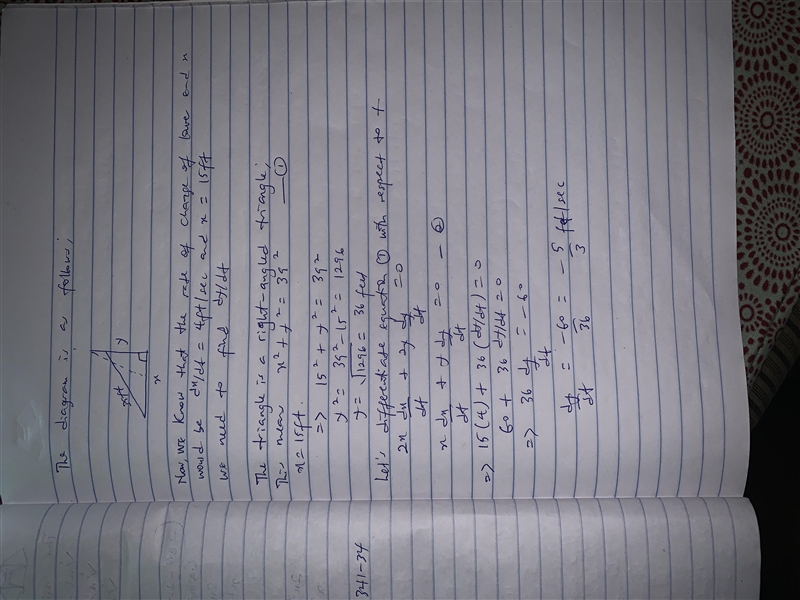 The diagram is a follows;
39ft
y
x
Now, we know that the rate of change of base and x
would be dx/dt = 4ft/sec and x = 15ft
we need to find dy/dt
The triangle is a right-angled triangle;
This mean x² + y² = 39² — ①
x = 15ft.
=> 15² + y² = 39²
y² = 39² - 15² = 1296
y = √1296 = 36 feet
Let's differentiate equation ① with respect to t
2x dx/dt + 2y dy/dt = 0
x dx/dt + y dy/dt = 0 — ②
=> 15(4) + 36(dy/dt) = 0
60 + 36 dy/dt = 0
=> 36 dy/dt = -60
dy/dt = -60/36 = -5/3 ft/sec
341-34